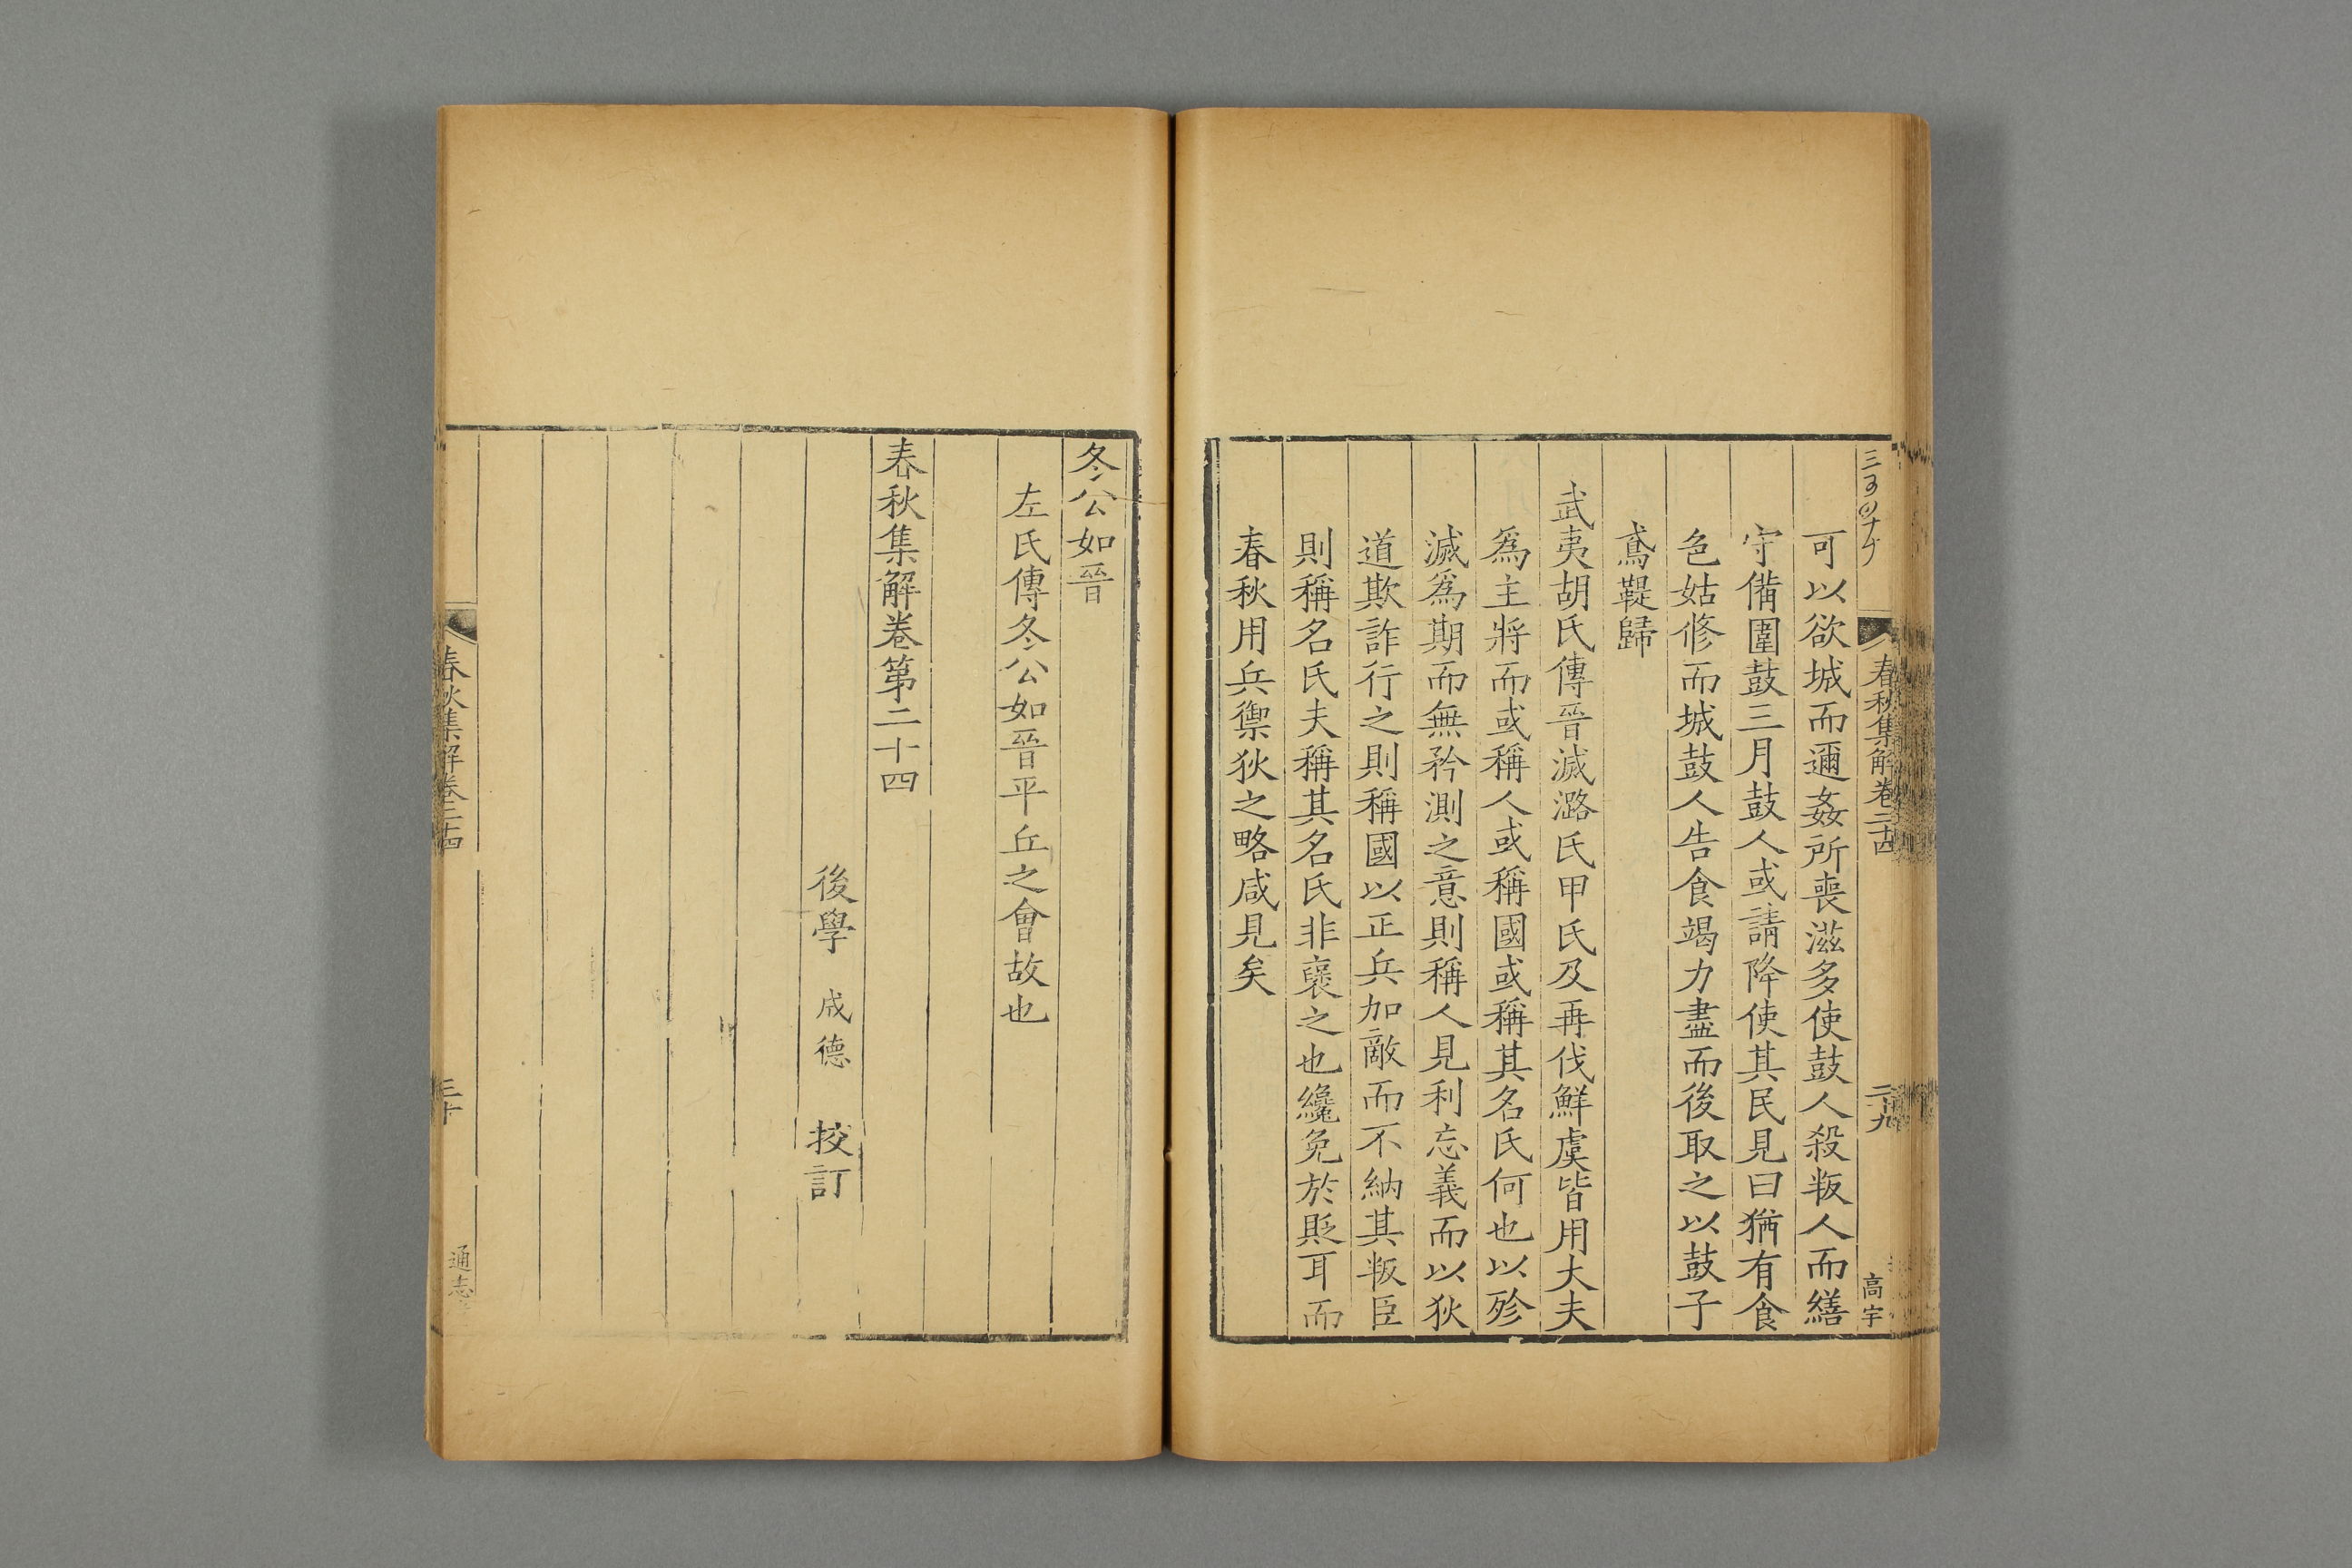 春秋集解卷二十四
二十九
高宇
可以欲城而邇姦所喪滋多使鼓人殺叛人而繕
守備圍鼓三月鼓人或請降使其民見曰猶有食
色姑修而城鼓人告食竭力盡而後取之以鼓子
鳶鞮歸
武夷胡氏傳晉滅潞氏甲氏及再伐鮮虞皆用大夫
爲主將而或稱人或稱國或稱其名氏何也以殄
滅爲期而無矜測之意則稱人見利忘義而以狄
道欺詐行之則稱國以正兵加敵而不納其叛臣
則稱名氏夫稱其名氏非襃之也纔免於貶耳而
春秋用兵禦狄之略咸見矣
冬公如晉
左氏傳冬公如晉平丘之會故也
春秋集解卷第二十四
後學 成德 挍訂
春秋集解卷二十四
三十
通志